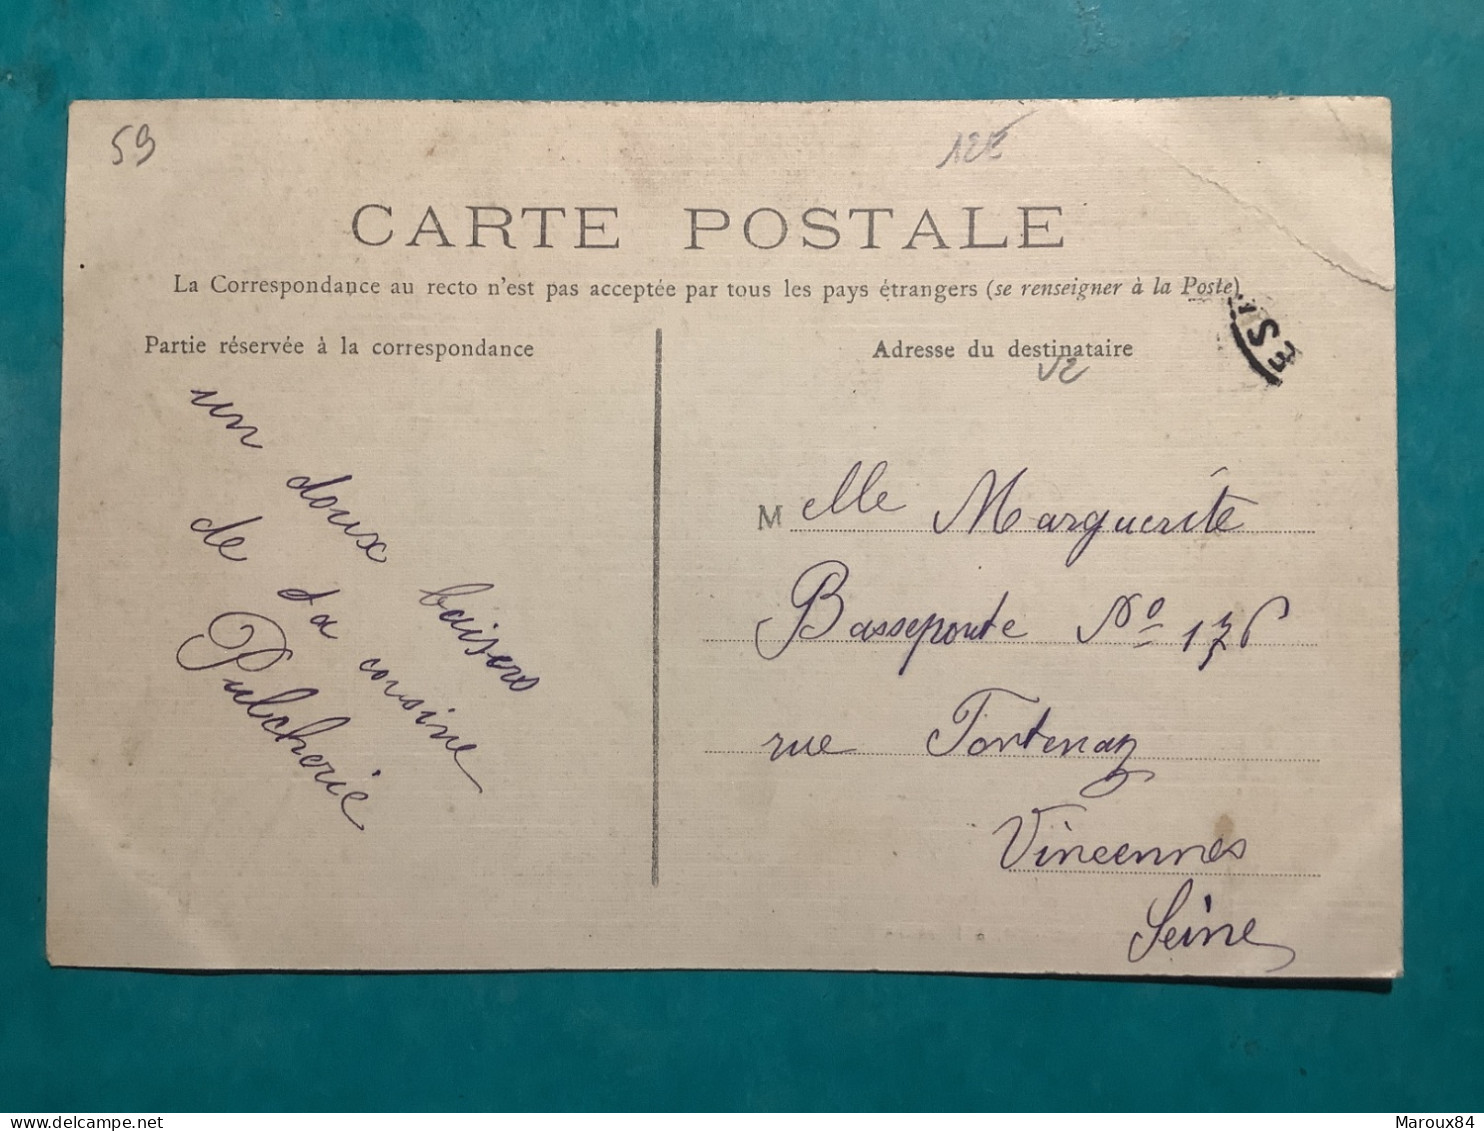 59
12E
CARTE POSTALE
La Correspondance au recto n'est pas acceptée par tous les pays étrangers (se renseigner à la Poste)
Partie réservée à la correspondance
un doux baisers
de ta cousine
Pulcherie
Adresse du destinataire
V2
Melle Marguerite
Basseporte No 176
rue Fontenay
Vincennes
Seine
Maroux84